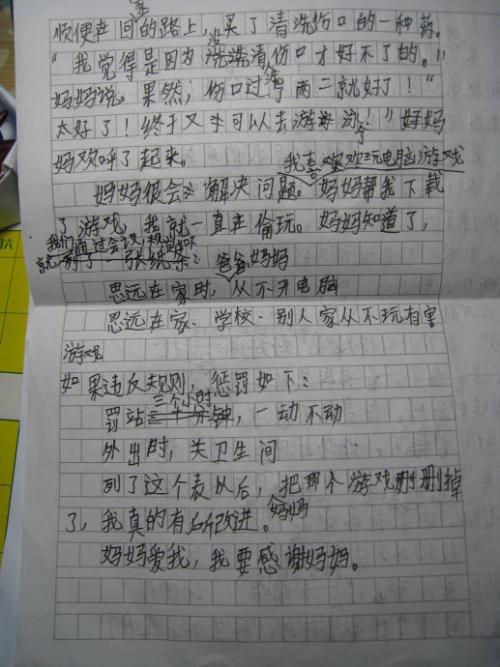 顺便在回家的路上，买了清洗伤口的一种药。
"我觉得是因为没洗清伤口才好不了的。"
妈妈说。果然，伤口过没两三就好了！"
太好了！终于又可以去游泳了！"妈妈
妈欢呼了起来。我喜欢玩电脑游戏
妈妈很会解决问题。妈妈帮我下载
了游戏，我就一直在偷玩。妈妈知道了，
我们通过会议，
就列了一张纸条：爸爸妈妈
思远在家时，从不开电脑
思远在家、学校、别人家从不玩有害
游戏
如果违反规则，惩罚如下：
罚站三个小时，一动不动
外出时，关卫生间
列了这个表以后，把那个游戏删删掉
了，我真的有所改进。妈妈
妈妈爱我，我要感谢妈妈。